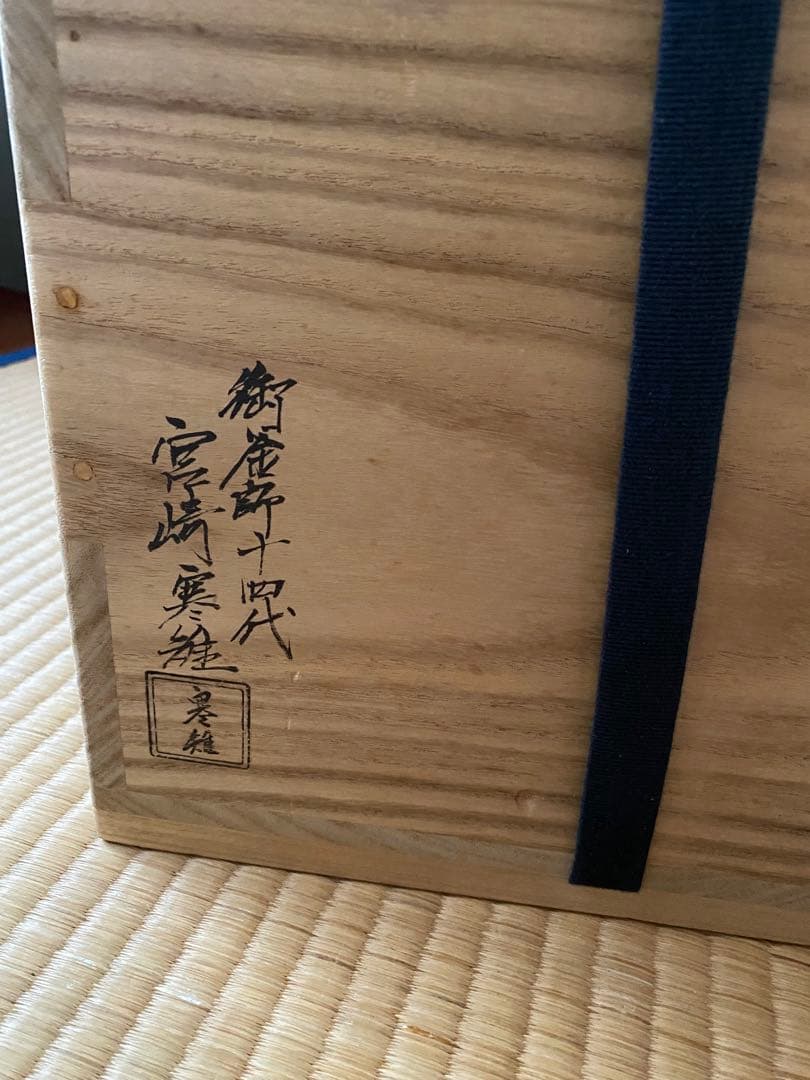 御釜師十四代
宮崎寒雉
寒雉